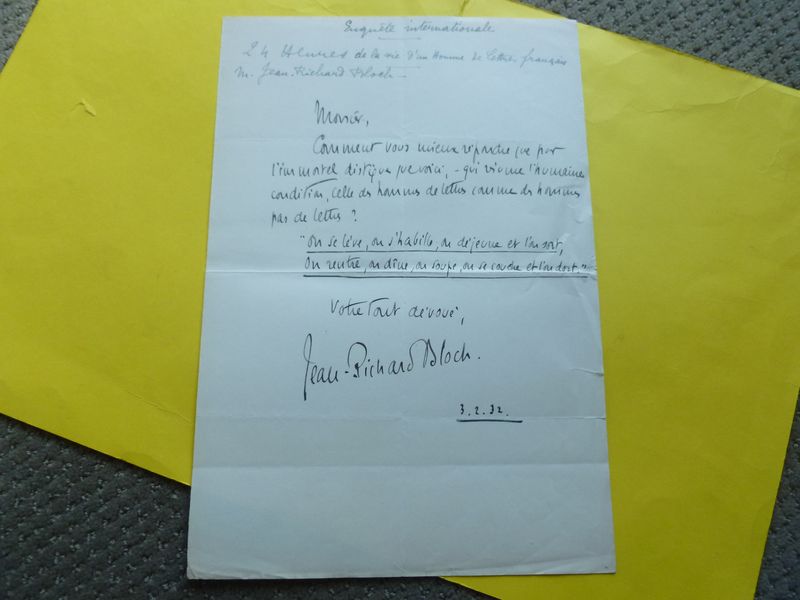 Enquête internationale
24 Heures de la vie d'un Homme de Lettres français
M. Jean-Richard Bloch
Monsieur,
Comment vous mieux répondre que par
l'immortel distique que voici, - qui résume l'humaine
condition, celle des hommes de lettres comme des hommes
pas de lettres ?
"On se lève, on s'habille, on déjeune et l'on sort,
On rentre, on dîne, on soupe, on se couche et l'on dort."
Votre tout dévoué,
Jean-Richard Bloch.
3.2.32.